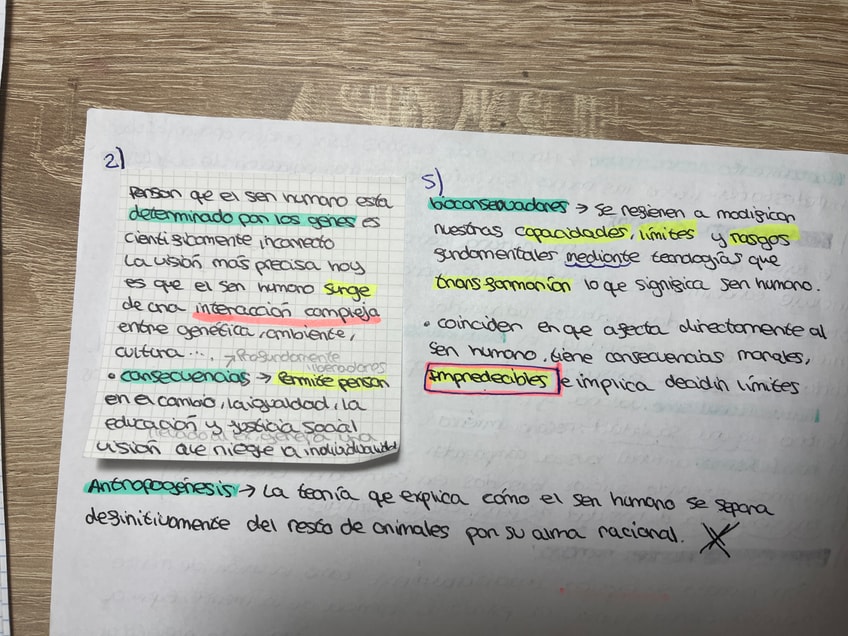 2)
Pensar que el ser humano está
determinado por los genes es
cientificamente incorrecto
La visión más precisa hoy
es que el ser humano surge
de una interacción compleja
entre genética, ambiente,
cultura... → Profundamente
liberadores
• consecuencias → Permite pensar
en el cambio, la igualdad, la
educación y justicia social
genera una
visión que niegue la individualidad
5)
bioconservadores → se refieren a modificar
nuestras capacidades, límites y rasgos
fundamentales mediante tecnologías que
transformarían lo que significa ser humano.
• coinciden en que afecta directamente al
ser humano, tiene consecuencias morales,
impredecibles e implica decidir límites
Antropogénesis → La teoría que explica cómo el ser humano se separa
definitivamente del resto de animales por su alma racional.